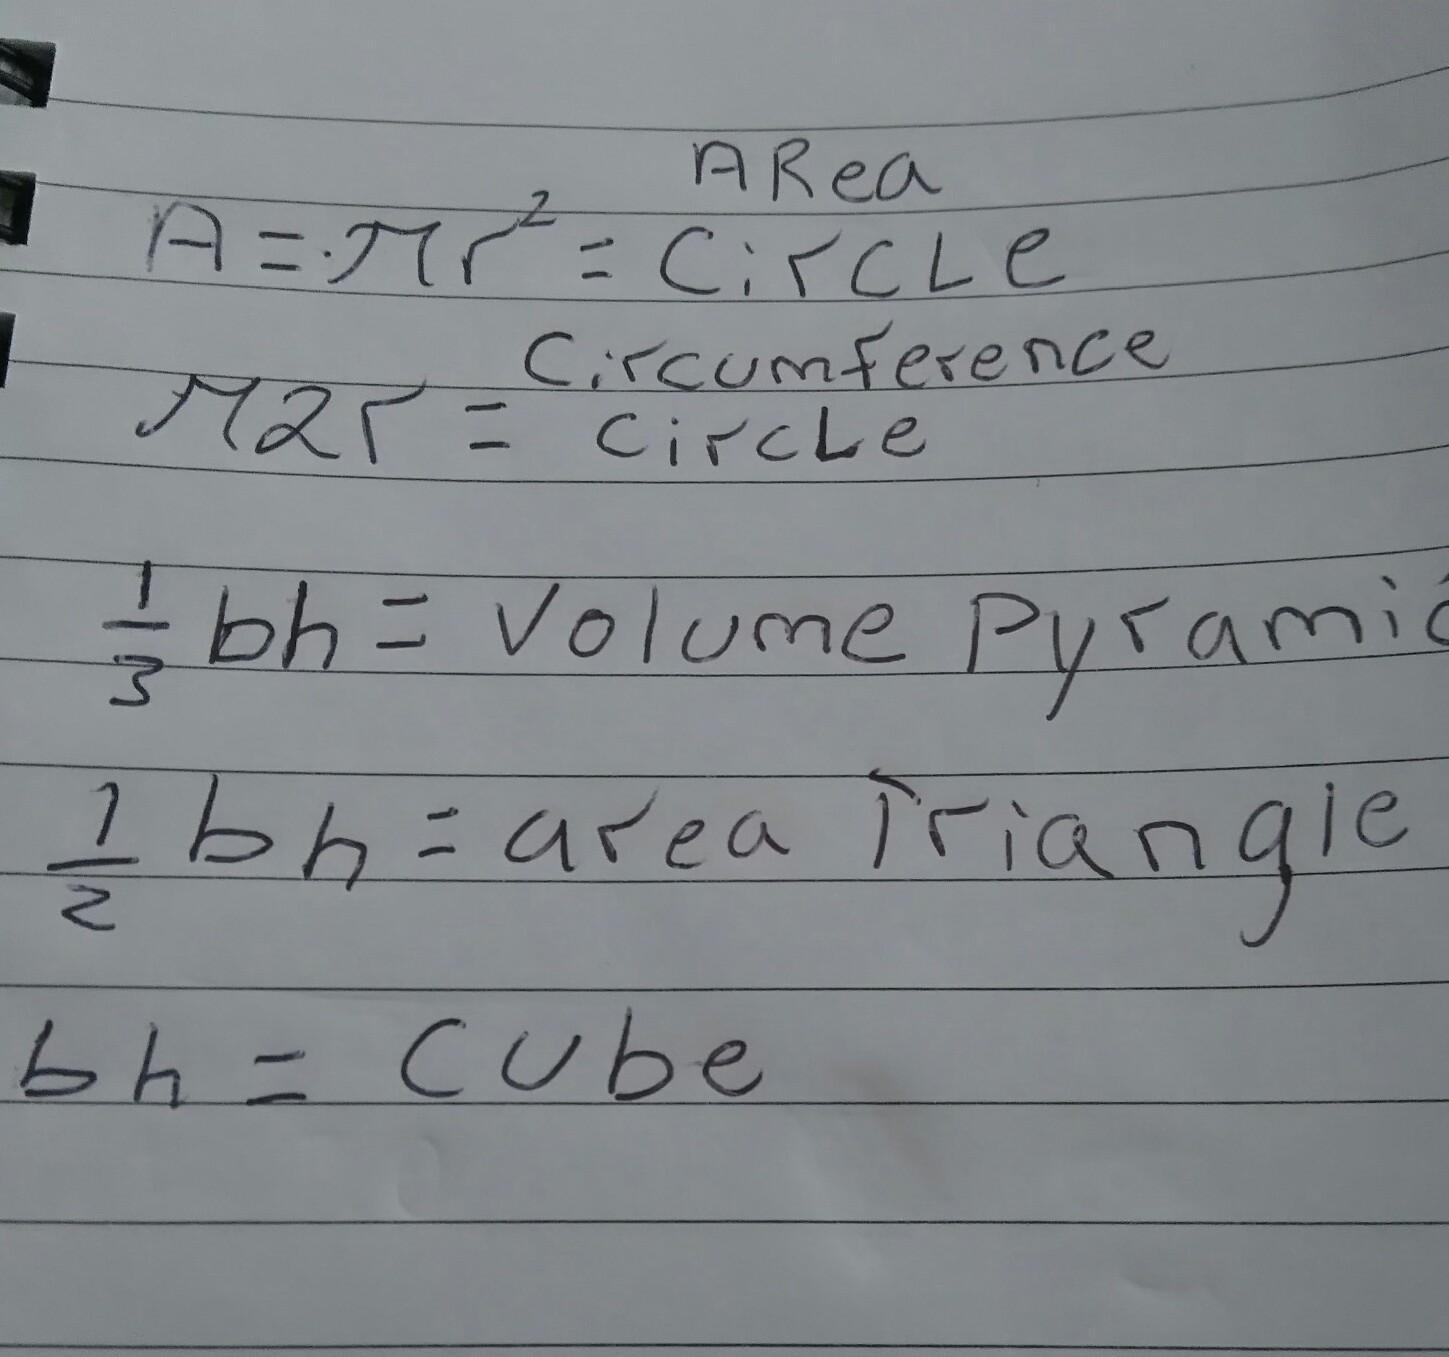 ARea
A = πr² = CirCLe
Circumference
π2r = CircLe
1/3 bh = Volume Pyramid
1/2 bh = area Triangle
bh = Cube